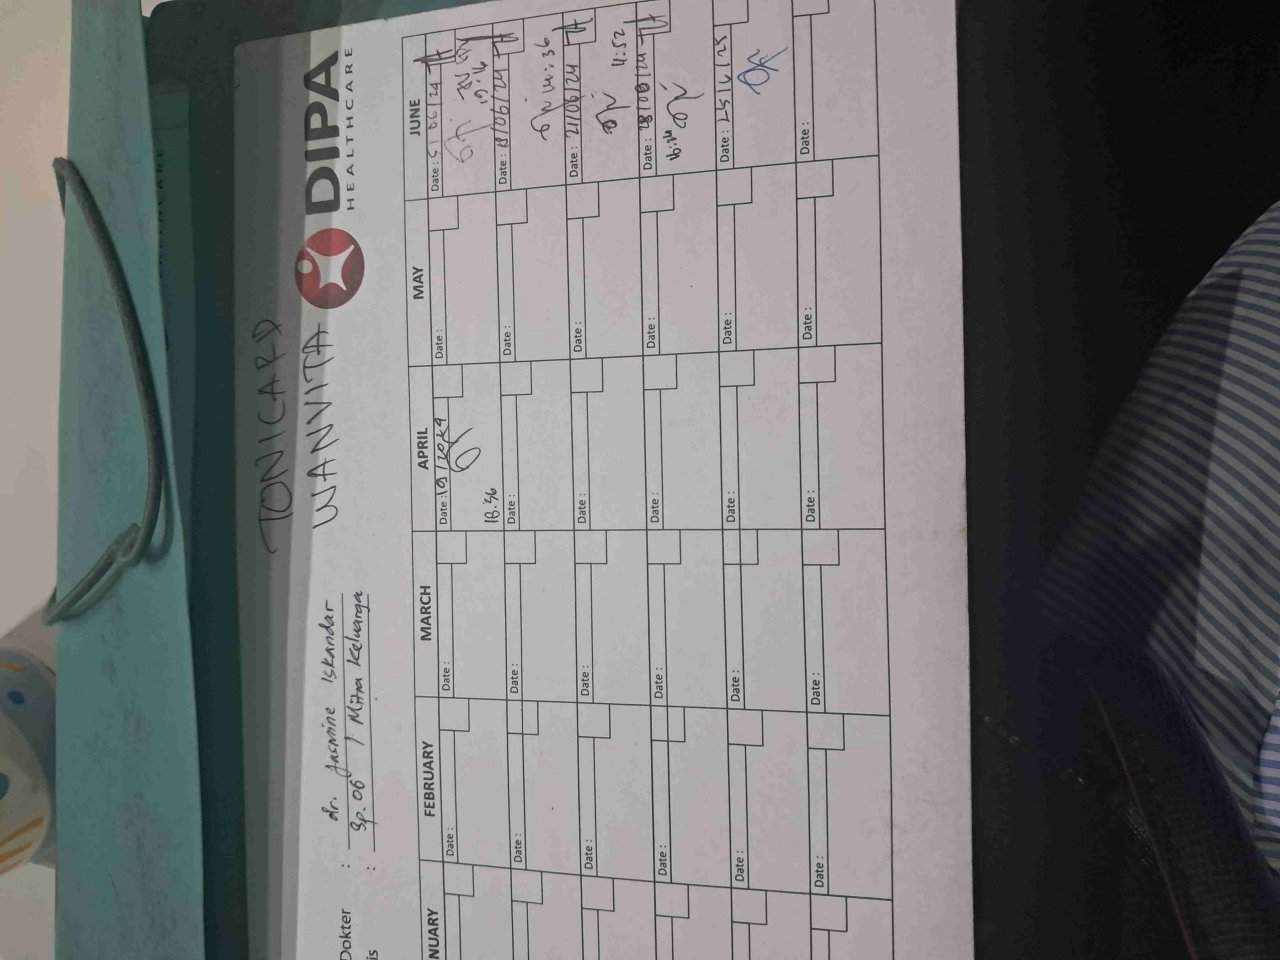 TONICARD
WANVITA
DIPA
HEALTHCARE
Dokter : dr. Jasmine Iskandar
is : Sp. OG / Mitra Keluarga
NUARY FEBRUARY MARCH APRIL MAY JUNE
Date : Date : Date : 19/2024 Date : Date : 5/06/24
18.56
Date : Date : Date : Date : Date : 19/06/24
14:36
Date : Date : Date : Date : Date : 21/06/24
11:52
Date : Date : Date : Date : Date : 28/06/24
Date : Date : Date : Date : Date : 25/6/25
Date : Date : Date : Date : Date :